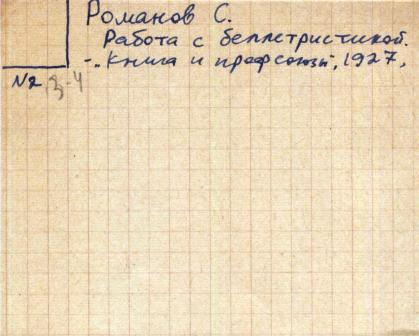 Романов С.
Работа с беллетристикой.
-"Книга и профсоюзы", 1927,
№2, 3-4